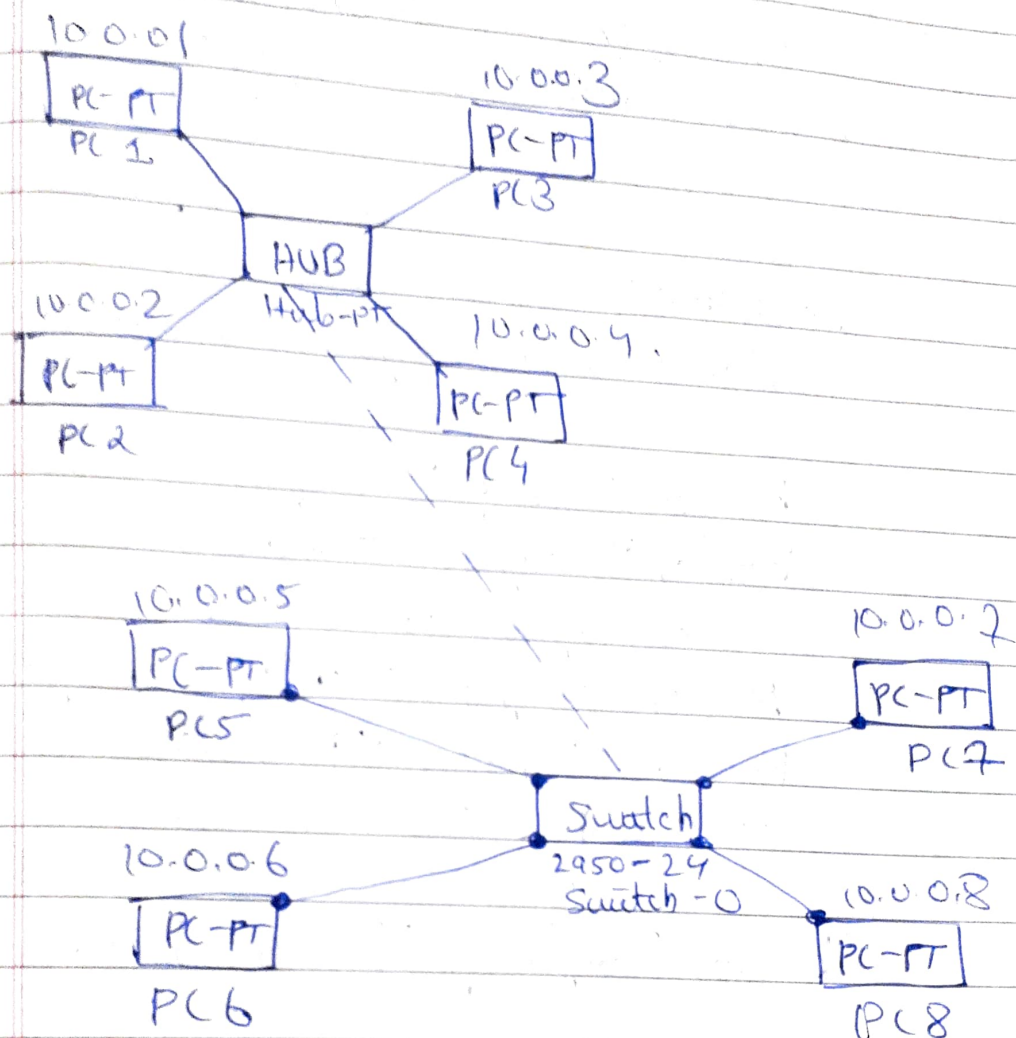 10 0.01
PC-PT
PC 1
10.0.0.3
PC-PT
PC3
HUB
Hub-pt
10.0.0.2
PC-PT
PC 2
10.0.0.4.
PC-PT
PC4
10.0.0.5
PC-PT
PC5
10.0.0.7
PC-PT
PC7
Swatch
2950-24
Switch-0
10.0.0.6
PC-PT
PC6
10.0.0.8
PC-PT
PC8